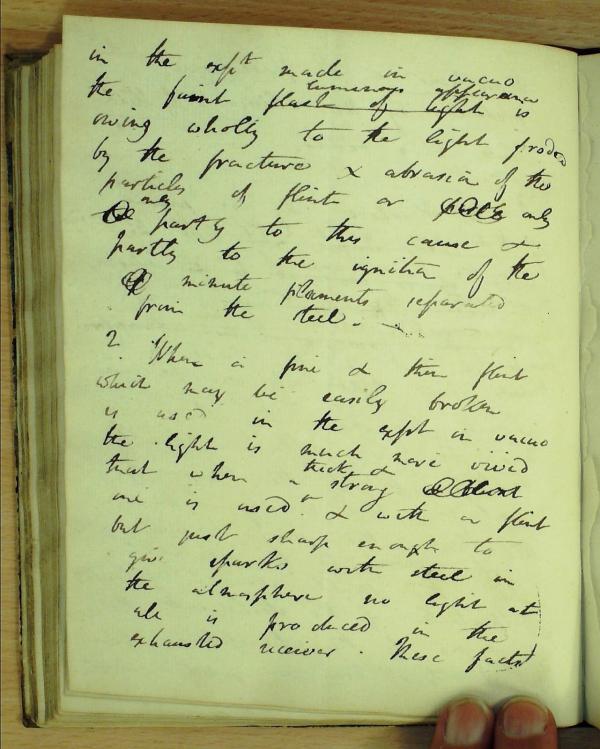 in the expt made in vacuo
the faint flash of light luminous appearance is
owing wholly to the light produced
by the fracture & abrasion of the
particles of flint or only
only partly to this cause &
partly to the ignition of the
minute filaments separated
from the steel. —
2. When a fine & thin flint
which may be easily broken
is used in the expt in vacuo
the light is much more vivid
that when a thick & strong blunt
one is used & with a flint
but just sharp enough to
give sparks with steel in
the atmosphere no light at
all is produced in the
exhausted receiver. These facts